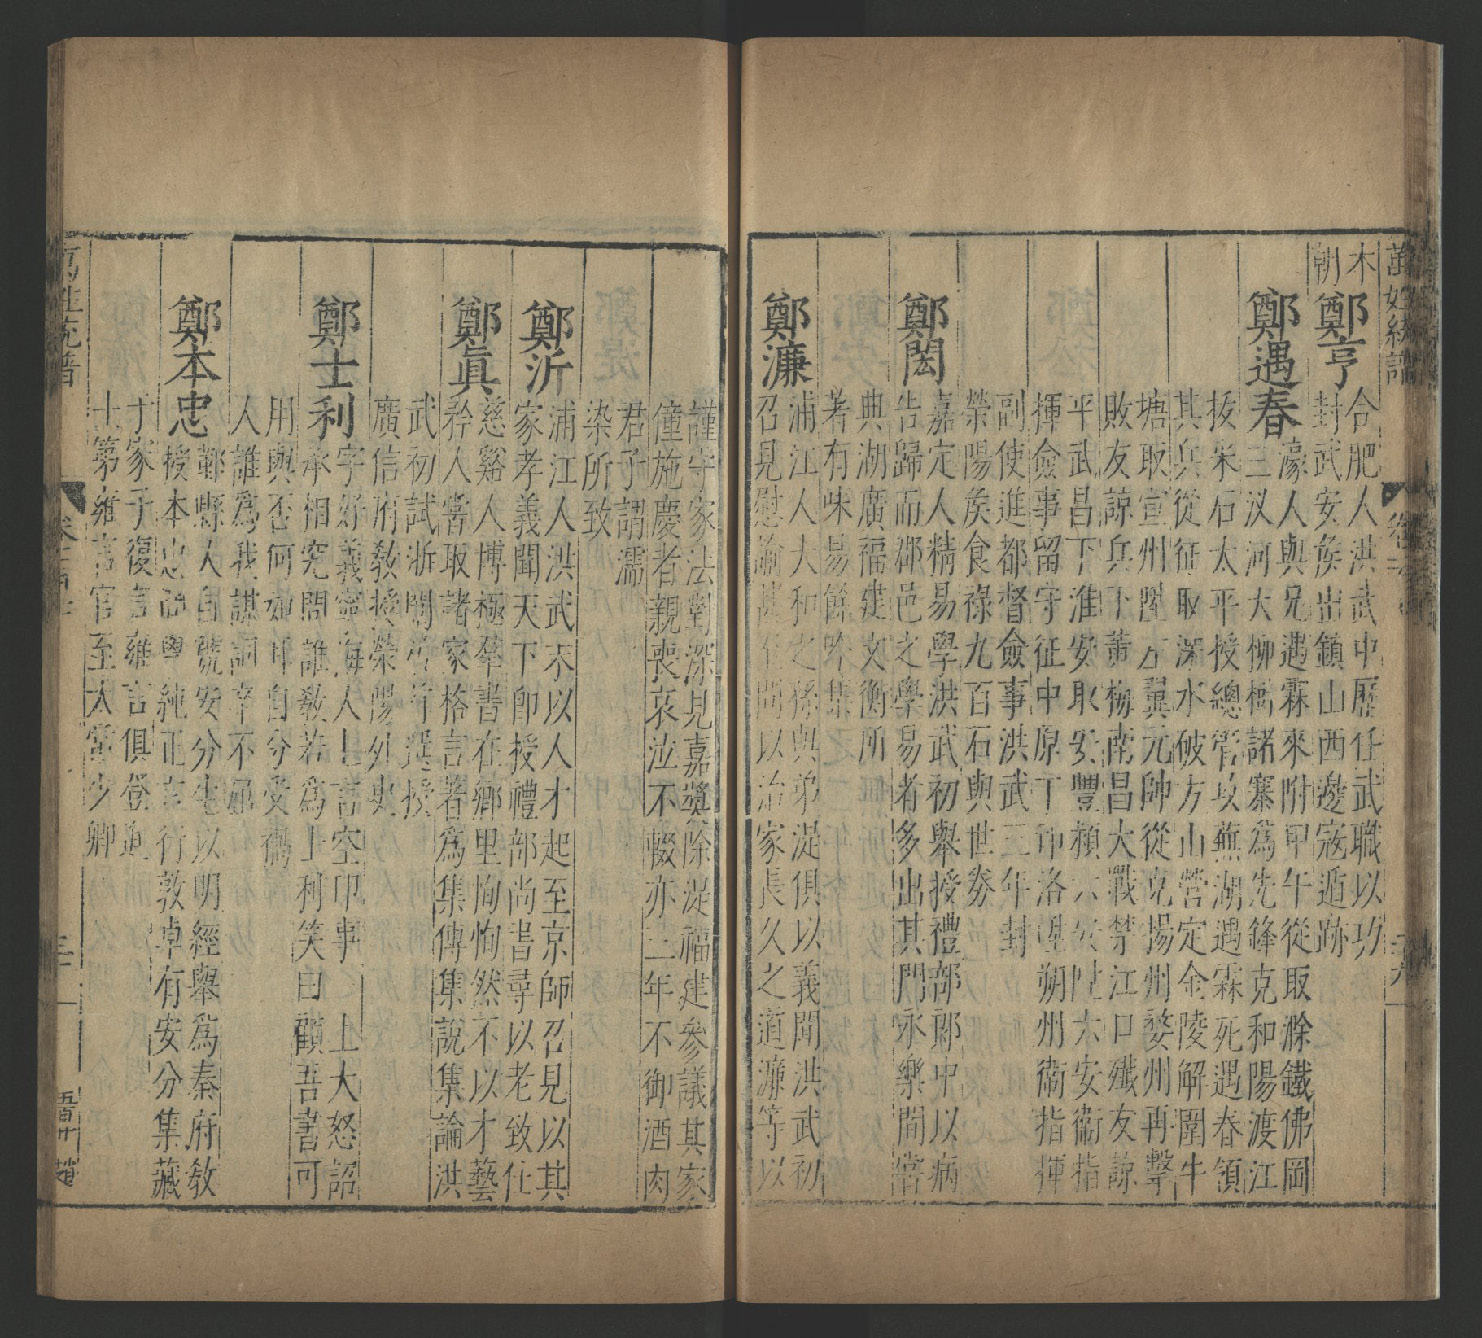 萬姓統譜
本朝
鄭亨
合肥人洪武中歷任武職以功
封武安矦出鎮山西邊寇遁跡
鄭遇春
濠人與兄遇霖來附甲午從取滁鐵佛岡
三汊河大柳樹諸寨爲先鋒克和陽渡江
拔采石太平授總管以蕪湖遇霖死遇春領
其兵從征取溧水破方山營定金陵解圍牛
塘取宣州閏左翼元帥從克揚州婺州再擊
敗友諒兵下黃梅南昌大戰禁江口殱友諒
平武昌下淮安取安豐潁六安陞六安衛指
揮僉事留守征中原下 洛 朔州衛指揮
副使進都督僉事洪武三年封
榮陽矦食祿九百石與世劵
鄭閎
嘉定人精易學洪武初舉授禮部郎中以病
告歸而郡邑之學易者多出其門永樂間嘗
典湖廣福建文衡所
著有味易餘吟集
鄭濂
浦江人大和之孫與弟湜俱以義聞洪武初
召見慰諭 問以治家長久之道濂等以
謹守家法對深見嘉奬除湜福建參議其家
僮施慶者親喪哀泣不輟亦三年不御酒肉
君子謂濡
染所致
鄭沂
浦江人洪武末以人才起至京師召見以其
家孝義聞天下卽授禮部尚書尋以老致仕
鄭眞
慈谿人博極羣書在鄉里恂恂然不以才藝
矜人嘗取諸家格言著爲集傳集說集論洪
武初試浙闈 選授
廣信府敎授滎陽外史
鄭士利
字好義寧海人上言空印事 上大怒詔
丞相究問誰敎若爲上利笑曰顧吾書可
用與否何如耳自分受 
人誰爲我謀詞卒不屈
鄭本忠
鄞縣人自號安分生以明經舉爲秦府敎
授本忠 學純正言行敦卓有安分集藏
于家子復言雍言俱登進
士第雍言官至太常少卿
萬姓統譜